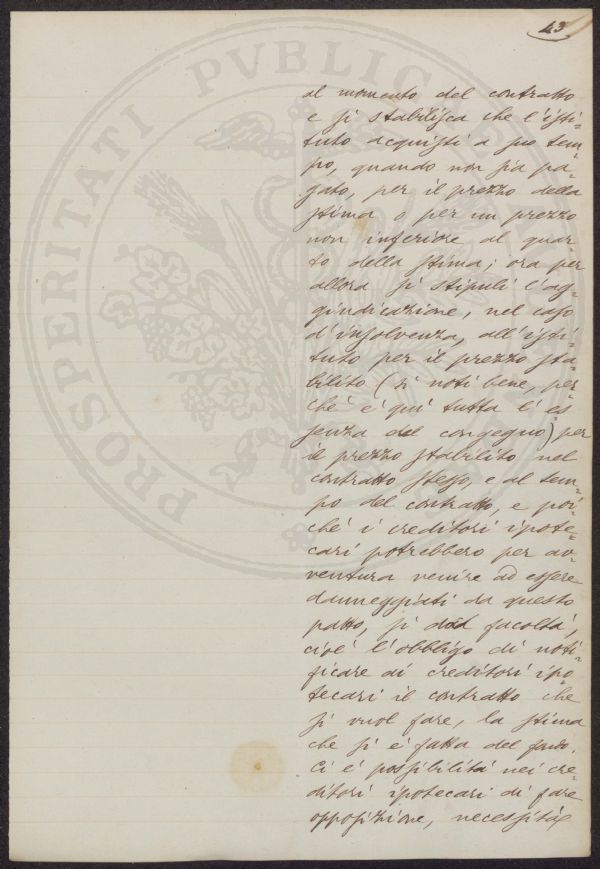 43
PROSPERITATI PVBLICAE
al momento del contratto
e si stabilisca che l'isti=
tuto acquisti a suo tem=
po, quando non sia pa=
gato, per il prezzo della
stima o per un prezzo
non inferiore al quar=
to della stima; ora per
allora si stipuli l'ag=
giudicazione, nel caso
d'insolvenza, all'isti=
tuto per il prezzo sta=
bilito (si noti bene, per
ché è qui tutta l'es
senza del congegno) per
il prezzo stabilito nel
contratto stesso, e al tem=
po del contratto, e poi=
ché i creditori ipote=
cari potrebbero per av=
ventura venire ad essere
danneggiati da questo
patto, si dà facoltà,
cioè l'obbligo di noti=
ficare ai creditori ipo=
tecari il contratto che
si vuol fare, la stima
che si è fatta del fondo.
Ci è possibilità nei cre=
ditori ipotecari di fare
opposizione, necessità